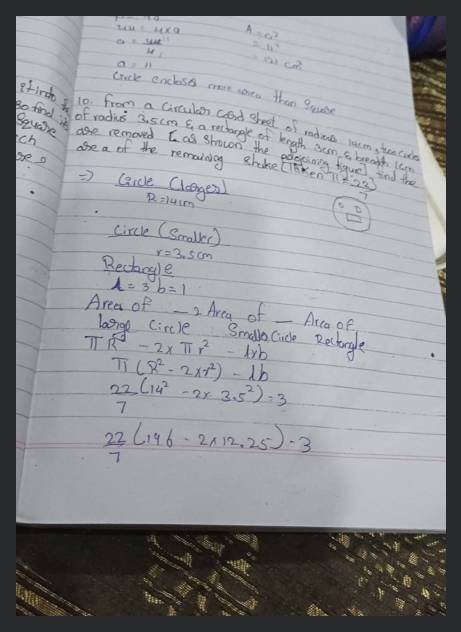 44 = 4×a
a = 44
4
a = 11
A = a²
= 11²
= 121 cm²
Circle encloses more area than Square
10. From a Circular card sheet of radius 14cm, two circles
of radius 3.5cm & a rectangle of length 3cm & breadth 1cm
are removed [as shown the figure] find the
area of the remaining sheet [Taken π = 22
7
⇒ Circle (larger)
R = 14cm
Circle (Smaller)
r = 3.5cm
Rectangle
l = 3 b = 1
Area of — 2 Area of — Area of
large Circle Smalls Circle Rectangle
πR² - 2×πr² - l×b
π(R² - 2×r²) - lb
22(14² - 2× 3.5²) - 3
7
22(196 - 2×12.25) - 3
7